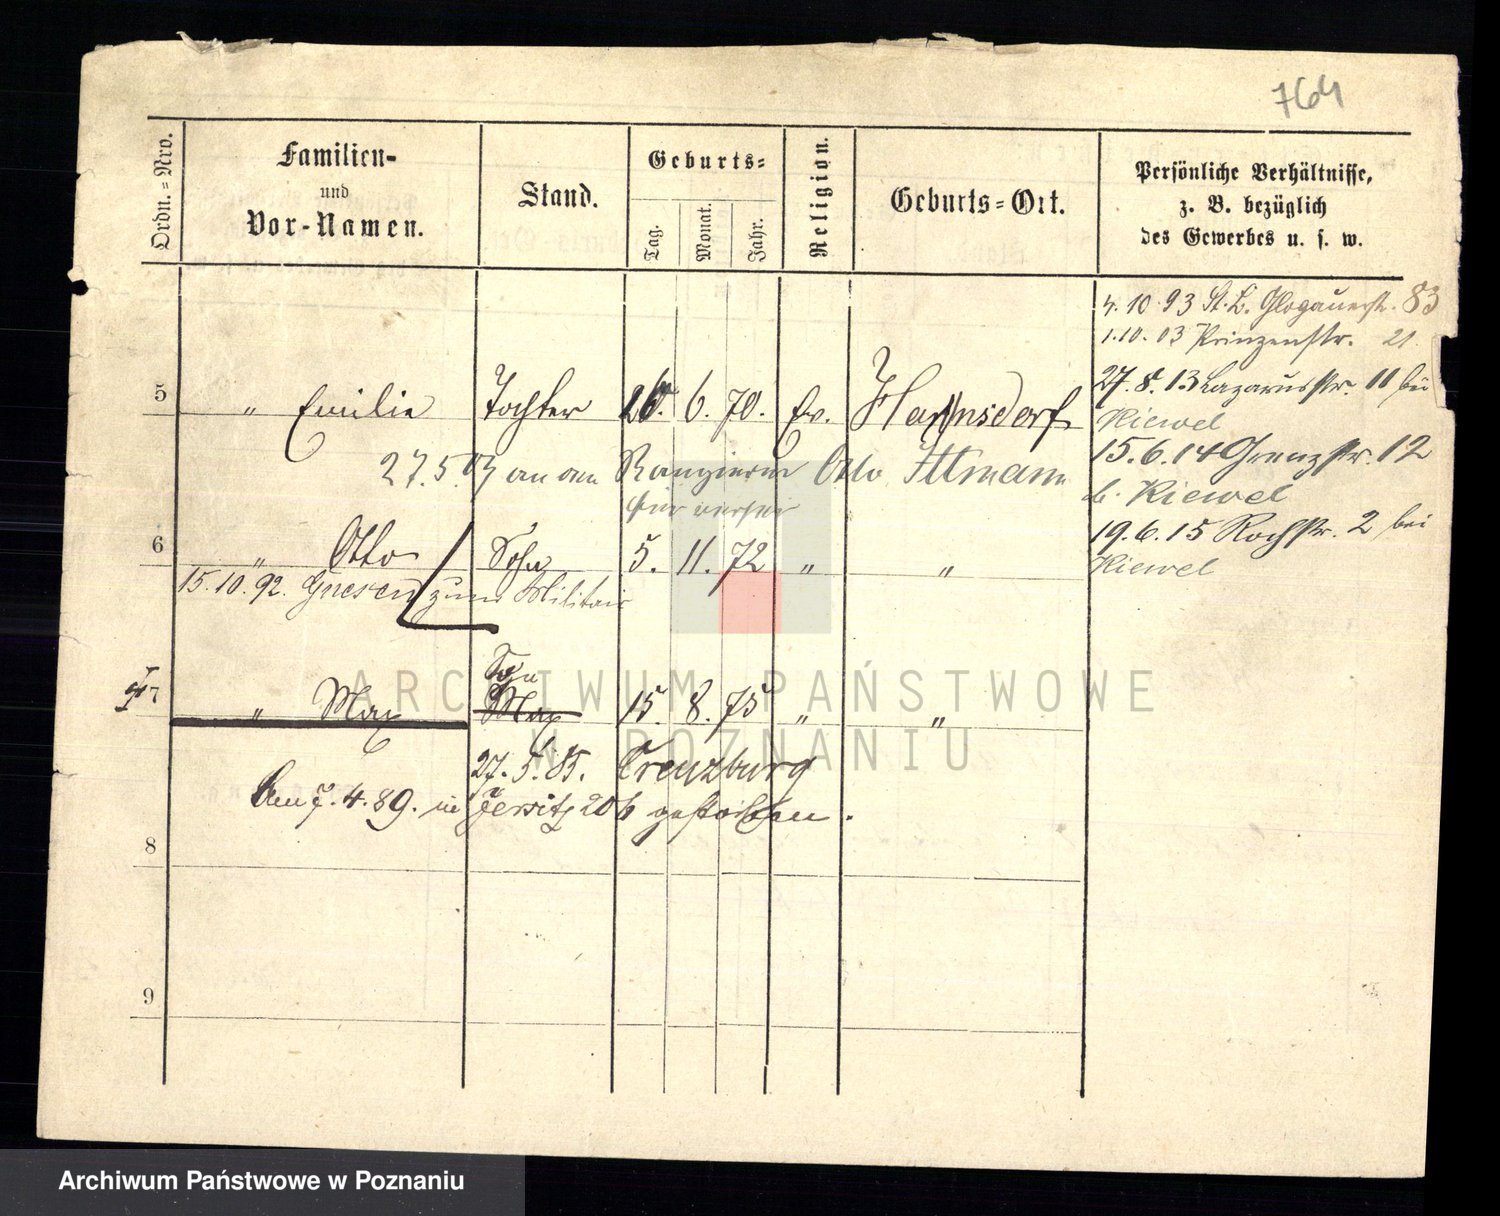 764
Ordn.=Nro.
Familien-
und
Vor-Namen.
Stand.
Geburts=
Tag.
Monat.
Jahr.
Religion.
Geburts=Ort.
Persönliche Verhältnisse,
z. B. bezüglich
des Gewerbes u. s. w.
4.10.93 St. L. Glogauerstr. 83
1.10.03 Prinzenstr. 21.
27.8.13 Lazarusstr. 11 bei
Kiewel
15.6.14 Grenzstr. 12
b. Kiewel
19.6.15 Rochstr. 2 bei
Kiewel
5 " Emilie Tochter 26. 6. 70. Ev. Hannsdorf
27.5.07 an den Rangierer Otto Ittmann
hier
6 " Otto Sohn 5. 11. 72 " "
15.10.92. Gnesen zum Militair
7 " Max Sohn Max 15. 8. 75 " "
27.5.85. Creuzburg
Am 7.4.89. in Jersitz 206 gestorben.
8
9
ARCHIWUM PAŃSTWOWE
W POZNANIU
Archiwum Państwowe w Poznaniu